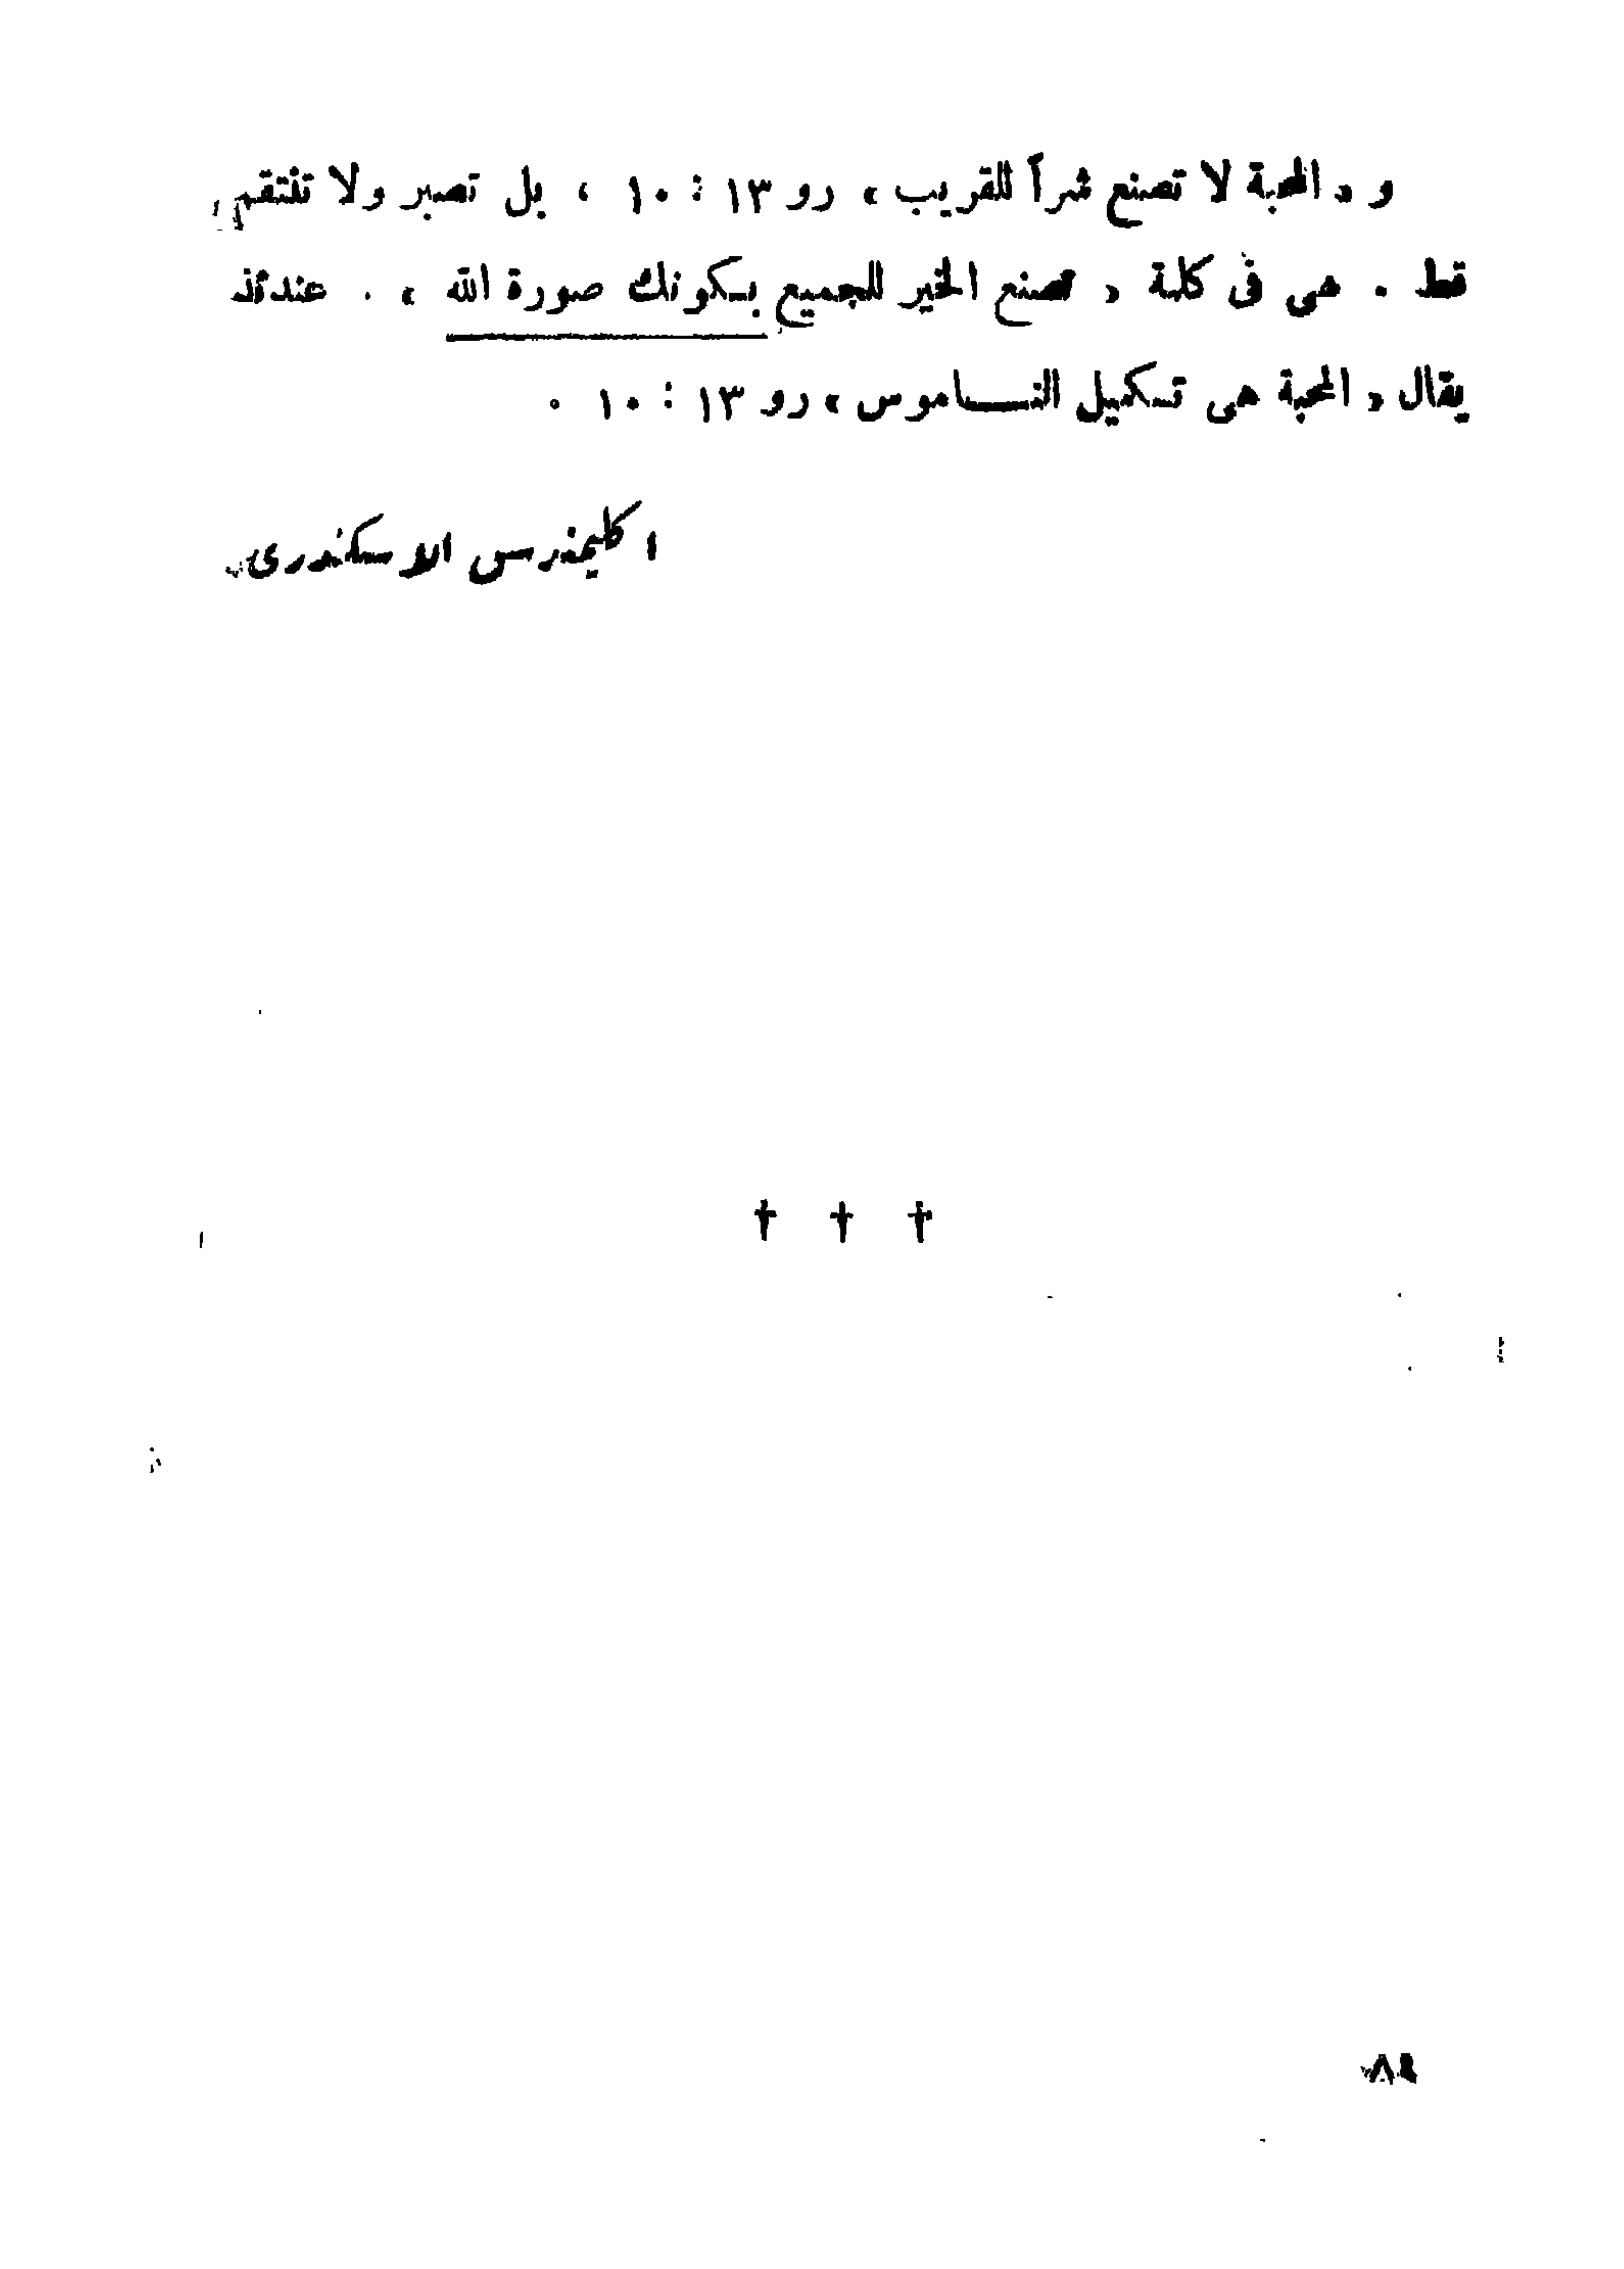 و « المحبة لا تصنع شراً للقريب » رو ١٣ : ١٠ ، بل تصبر ولا تنتقم
قط . هى فى كلمة « تصنع الخير للجميع بكونك صورة الله » . عندئذ
يقال « المحبة هى تكميل النــاموس » رو ١٣ : ١٠ .
اكليمندس الاسكندرى
† † †